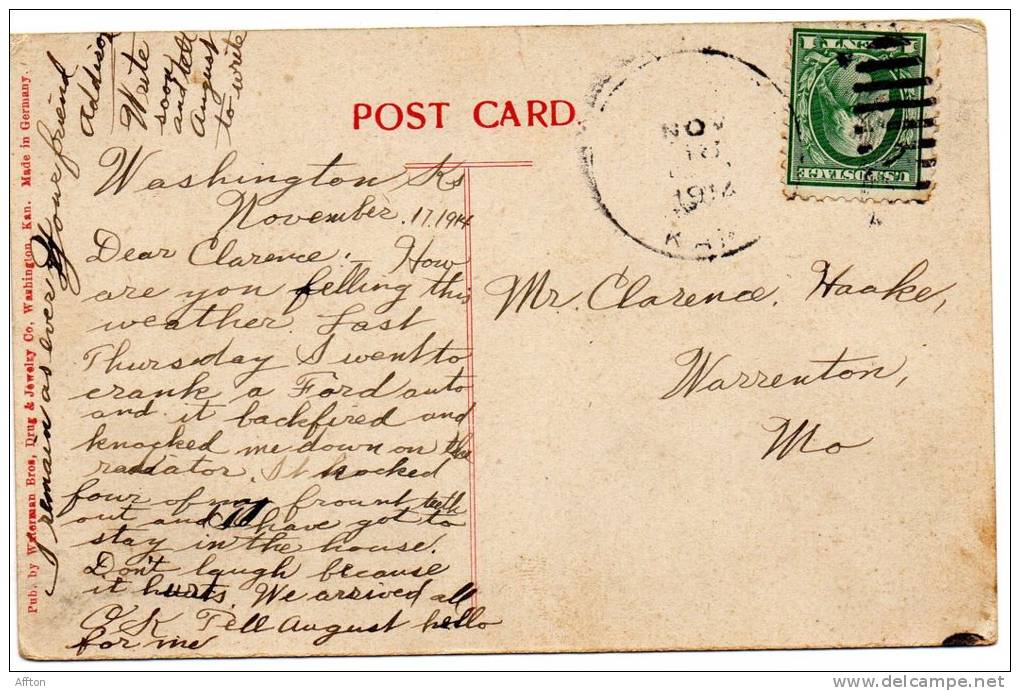 POST CARD.
Washington Ks
November. 17. 1914
Dear Clarence:- How
are you felling this
weather. Last
Thursday I went to
crank a Ford auto
and it backfired and
knocked me down on the
radiator. It nocked
four of my frount teeth
out and I have got to
stay in the house.
Don't laugh because
it hurts. We arrived all
O.K Tell August hello
for me
I remain as ever Your friend
Addison
Write
soon
and tell
August
to write
Mr. Clarence. Haake,
Warrenton,
Mo
NOV
18
1914
KAN
U.S. POSTAGE
1 CENT 1
Pub. by Waterman Bros, Drug & Jewelry Co, Washington, Kan. Made in Germany.
Affton
www.delcampe.net